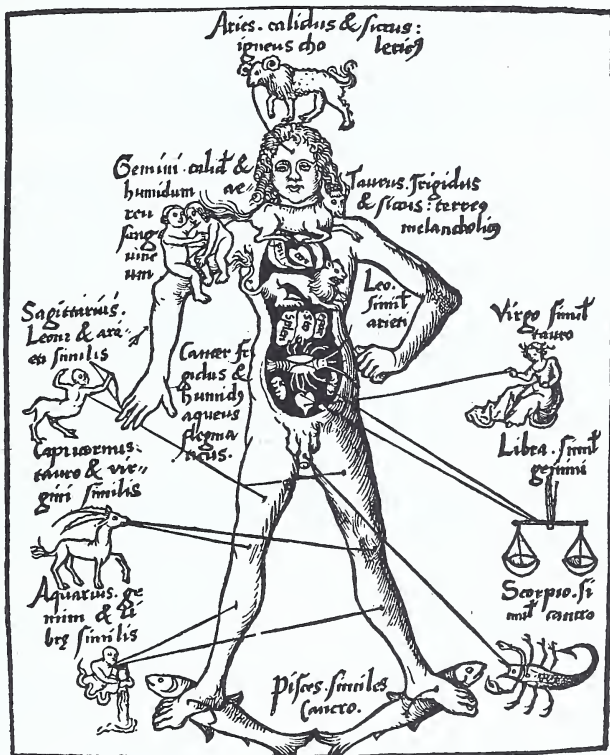 Aries. calidus & siccus:
igneus cho leric9
Gemini. calid9 &
humidum ae-
reu
sang
uine
um
Taurus. frigidus
& siccus: terre9
melancholic9
Leo.
simil9
arieti
Sagittarius.
Leoni & ari-
eti similis
Cancer fri
gidus &
humid9
aqueus
flegma
ticus.
Virgo simil9
tauro
Capricornus:
tauro & vir-
gini similis
Libra. simil9
gemini
Aquarius. ge
mini & li
brę similis
Scorpio. si
mil9 cancro
Pisces. similes
Cancro.